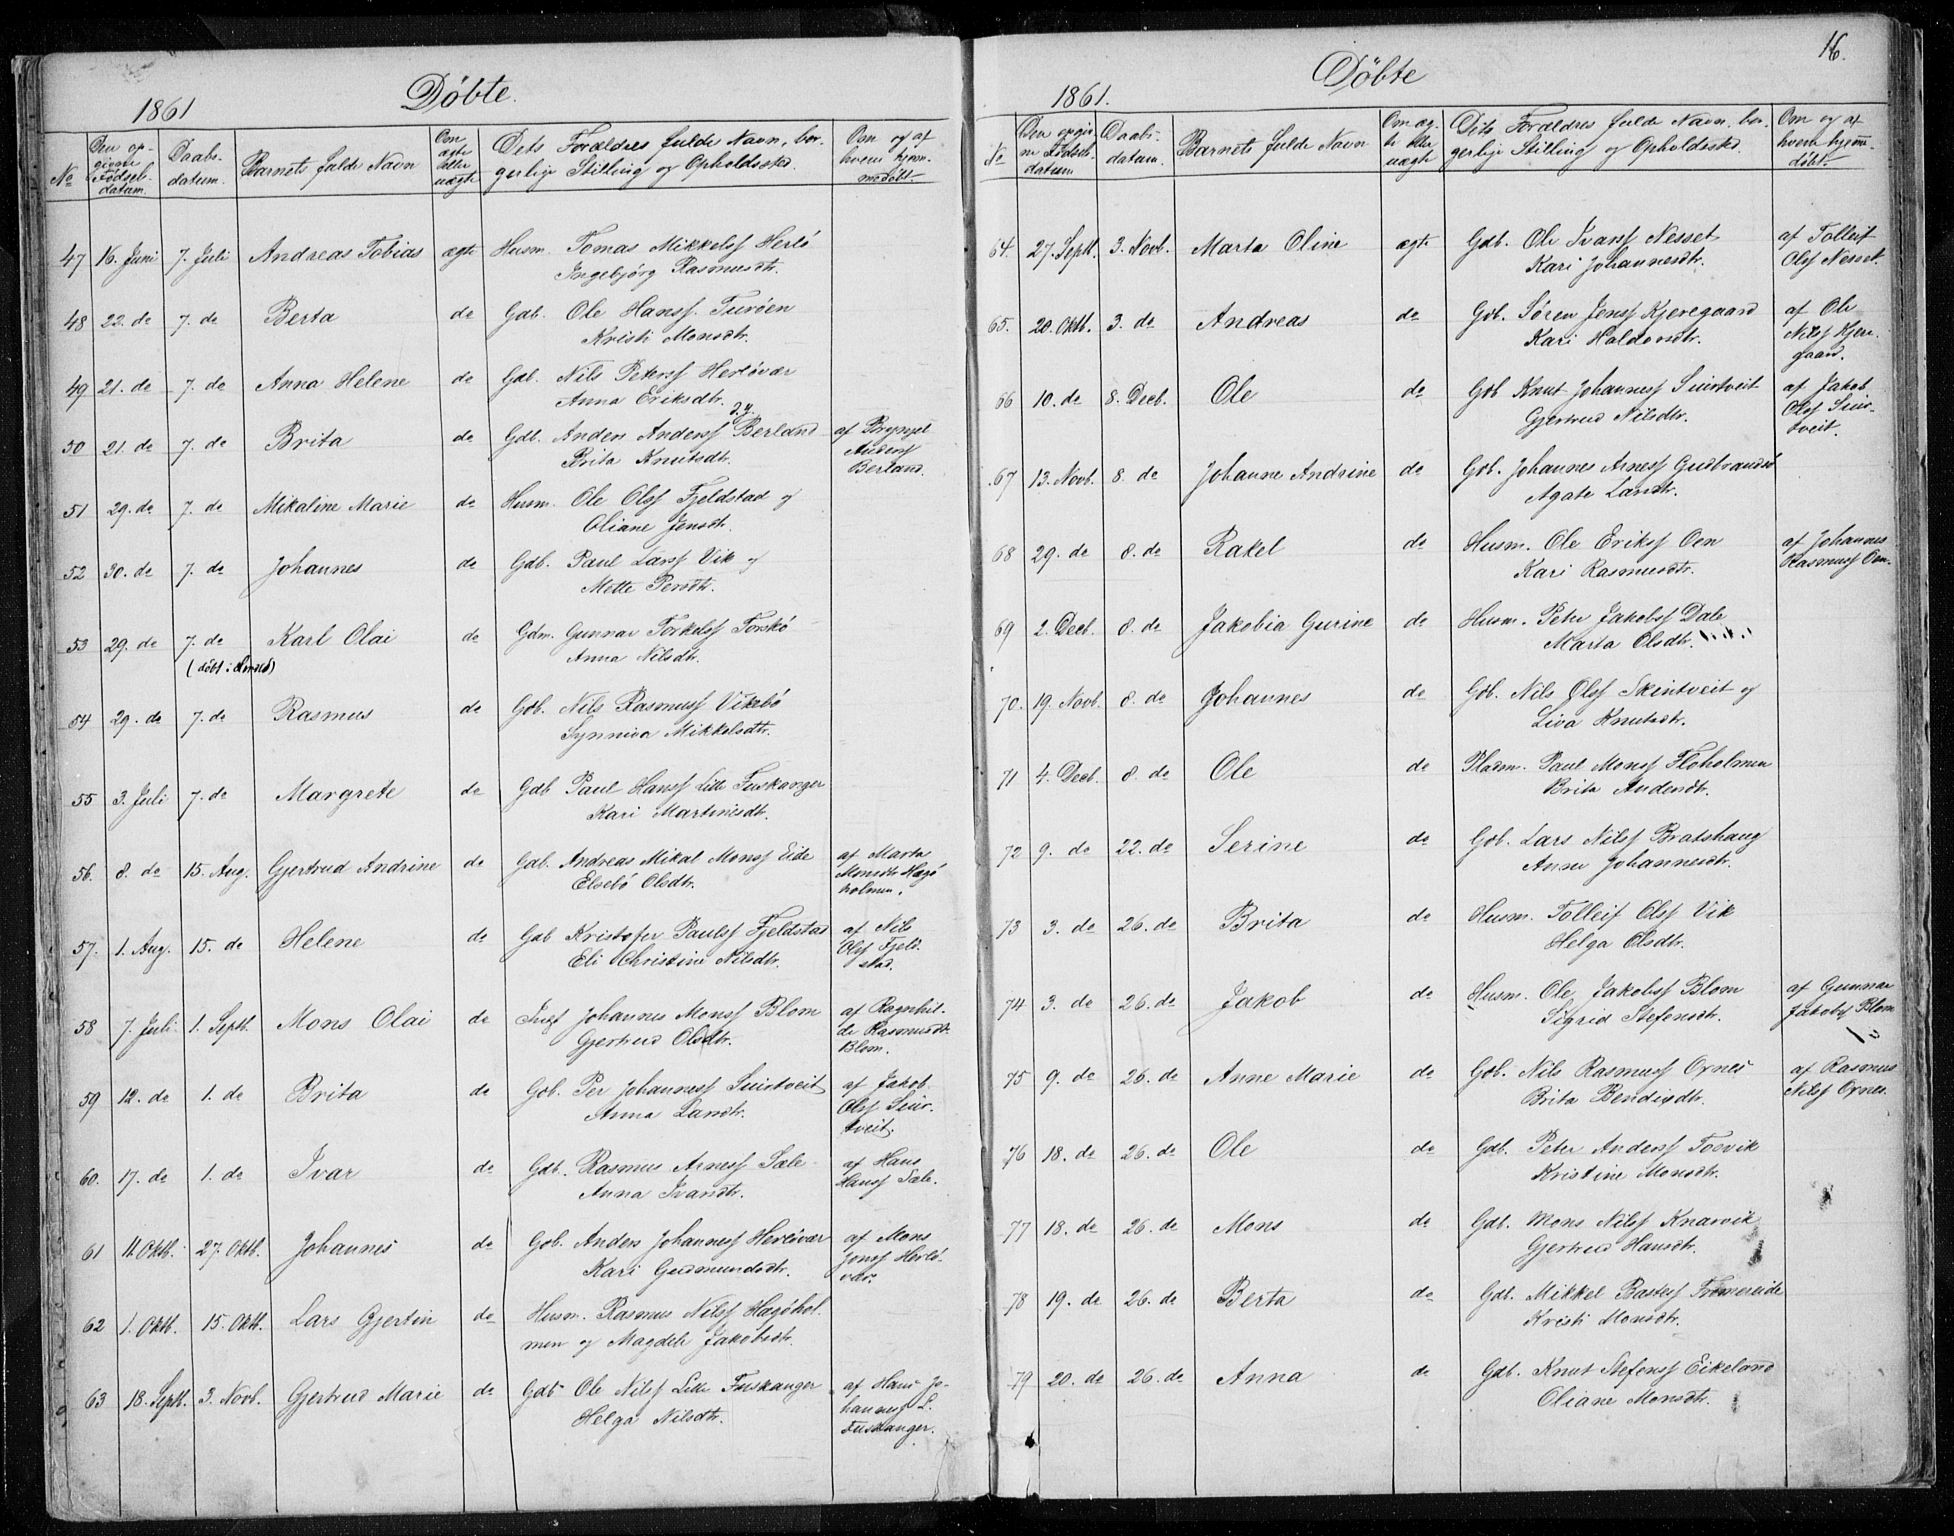 1861 Döbte.
No Den opgivne Fødselsdatum. Daabsdatum. Barnets fulde Navn Om ægte eller uægte Dets Forældres fulde Navn, borgerlige Stilling og Opholdssted. Om og af hvem hjemmedøbt.
47 16. Juni 7. Juli Andreas Tobias ægte Husm. Tomas Mikkelsf Herlö
Ingebjörg Rasmusdtr.
48 22. do 7. do Berta do Gdb. Ole Hansf. Turöen
Kristi Monsdtr.
49 21. do 7. do Anna Helene do Gdb. Nils Petersf Herlövær
Anna Eriksdtr.
50 21. do 7. do Brita do Gdb. Anders Andersf Berland af Brynjel
Brita Knutsdtr. Andersf
Berland.
51 29. do 7. do Mikaline Marie do Husm. Ole Olsf Fjeldstad og
Oliane Jensdtr.
52 30. do 7. do Johannes do Gdb. Paul Larsf Vik og
Mette Persdtr.
53 29. do 7. do Karl Olai do Gdm. Gunnar Torkelsf Torskö
(döbt i Armed) Anna Nilsdtr.
54 29. do 7. do Rasmus do Gdb. Nils Rasmusf Vikebö
Synniva Mikkelsdtr.
55 3. Juli 7. do Margrete do Gdb Paul Hansf Litle Fuskanger
Kari Martinsdtr.
56. 8. do 15. Aug. Gjertrud Andrine do Gdb. Andreas Mikal Monsf Eide af Marta
Elsebö Olsdtr. Monsdtr Hagö
holmen.
57. 1. Aug. 15. do Helene do Gdb Kristofer Paulsf Fjeldstad af Nils
Eli Christine Nilsdtr. Olsf Fjeld
stad.
58 7. Juli 1. Septb. Mons Olai do Johannes Monsf Blom af Ragnhil-
Gjertrud Olsdtr. de Rasmusdtr
Blom.
59 12. do 1. do Brita do Gdb. Per Johannesf Suirtveit af Jakob
Anna Larsdtr. Olsf Suir-
tveit.
60. 17. do 1. do Ivar do Gdb. Rasmus Arnesf Sæle af Hans
Anna Ivarsdtr. Hansf Sæle.
61 11 Oktb. 27. Oktb. Johannes do Gdb. Anders Johannesf Herlövær af Mons
Kari Gudmundsdtr. Jonsf Herlö-
vær.
62 1. Oktb. 15. Oktb. Lars Gjertin do Husm. Rasmus Nilsf Hagöhol
men og Magdele Jakobsdtr.
63 18. Septb. 3. Novb. Gjertrud Marie do Gdb Ole Nilsf Litle Fuskanger af Hans Jo-
Helga Nilsdtr. hannesf L.
Fuskanger.
16.
1861. Döbte
No Den opgivne Fødselsdatum Daabsdatum. Barnets fulde Navn Om ægte eller uægte Dets Forældres fulde Navn, borgerlige Stilling og Opholdssted. Om og af hvem hjemmedøbt.
64. 27. Septb. 3. Novb. Marta Oline ægte Gdb. Ole Ivarsf Nesset af Tolleif
Kari Johannesdtr. Olsf Nesset.
65. 20. Oktb. 3. do Andreas do Gdb. Sören Jensf Kjeregaard af Ole
Kari Haldorsdtr. Nilsf Kjere-
gaard.
66 10. do 8. Decb. Ole do Gdb Knut Johannesf Suirtveit af Jakob
Gjertrud Nilsdtr. Olsf Suir-
tveit.
67 13. Novb. 8. do Johanne Andrine do Gdb. Johannes Arnesf Gudbrandsö
Agate Larsdtr.
68 29. do 8. do Rakel do Husm. Ole Eriksf Oen af Johannes
Kari Rasmusdtr. Rasmusf Oen.
69 2. Decb. 8. do Jakobia Gurine do Husm. Peter Jakobsf Dale
Marta Olsdtr.
70. 19. Novb. 8. do Johannes do Gdb. Nils Olsf Skintveit og
Liva Knutsdtr.
71 4. Decb. 8. do Ole do Pladsm. Paul Monsf Floholmen
Brita Andersdtr.
72 9. do 22. do Serine do Gdb. Lars Nilsf Bratshaug
Anne Johannesdtr.
73 3. do 26. do Brita do Husm. Tolleif Olsf Vik
Helga Olsdtr.
74 3. do 26. do Jakob do Husm. Ole Jakobsf Blom af Gunnar
Sigrid Stefensdtr. Jakobsf Blom
75 9. do 26. do Anne Marie do Gdb. Nils Rasmusf Ornes af Rasmus
Brita Bendixdtr. Nilsf Ornes.
76 18. do 26. do Ole do Gdb. Peter Andersf Tosvik
Kristine Monsdtr.
77 18. do 26. do Mons do Gdb. Mons Nilsf Knarvik
Gjertrud Hansdtr.
78 19. do 26. do Berta do Gdb. Mikkel Rastesf Fromereide
Kristi Monsdtr.
79 20. do 26. do Anna do Gdb. Knut Stefensf Eikeland
Oliane Monsdtr.